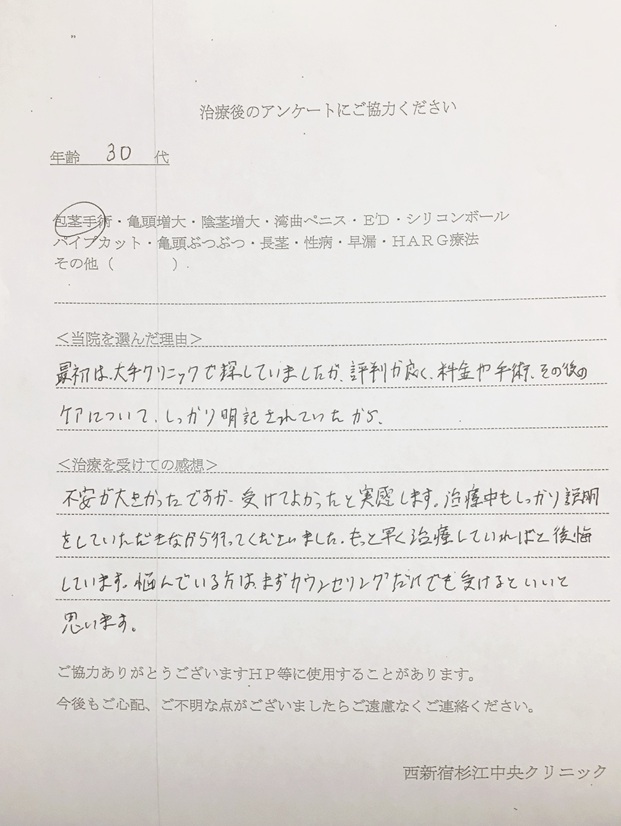 治療後のアンケートにご協力ください
年齢 30 代
包茎手術・亀頭増大・陰茎増大・湾曲ペニス・ED・シリコンボール
パイプカット・亀頭ぶつぶつ・長茎・性病・早漏・HARG療法
その他（ ）
＜当院を選んだ理由＞
最初は、大手クリニックで探していましたが、評判が良く、料金や手術、その後の
ケアについて、しっかり明記されていたから、
＜治療を受けての感想＞
不安が大きかったですが、受けてよかったと実感します。治療中もしっかり説明
をしていただきながら行ってくださいました。もっと早く治療していればと後悔
しています。悩んでいる方は、まずカウンセリングだけでも受けるといいと
思います。
ご協力ありがとうございますHP等に使用することがあります。
今後もご心配、ご不明な点がございましたらご遠慮なくご連絡ください。
西新宿杉江中央クリニック